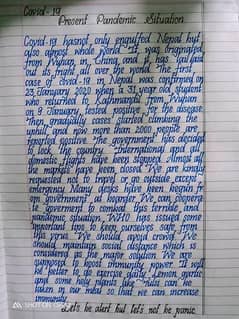 Covid-19
Present Pandemic Situation
Covid-19 hasnot only engulfed Nepal but
also almost whole world. It was originated
from Wuhan, in China, and it has laid
out its fright all over the world. The first
case of covid-19 in Nepal was confirmed on
23 January 2020 when a 31 year old student
who returned to Kathmandu from Wuhan
on 9 January tested positive for the disease
Then gradually cases started climbing the
uphill and now more than 2000 people are
reported positive. The government has decided
to lock the country. International and all
domestic flights have been stopped. Almost all
the markets have been closed. We are kindly
requested not to night or go outside except
emergency. Many desks have been begun from
government at boarder. We can cooperate
government to combat this terrible and
pandemic situation. WHO has issued some
important tips to keep ourselves safe from
this virus. We should avoid crowd. We
should maintain social distance which is
considered as the major solution. We are
supposed to boost immunity power. It will
be better to do exercise daily. Lemon, garlic
and some help plants like Tulsi can be
taken in our meal so that we can increase
immunity.
Let's be alert but let's not be panic.
SHOT ON